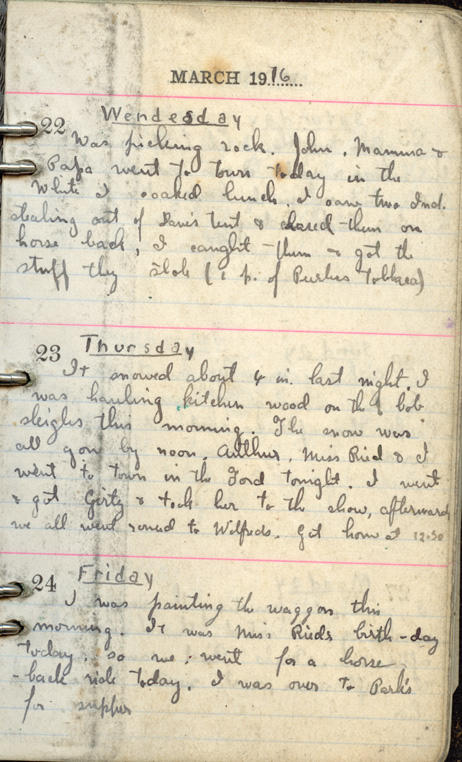 MARCH 1916
22 Wendesday
Was picking rock. John, Mamma &
Papa went to town today in the
White I cooked lunch. I saw two Ind.
stealing out of Dave's tent & chased them on
horse back, I caught them & got the
stuff they stole (1 p. of Tobbaca)
23 Thursday
It snowed about 4 in. last night. I
was hauling kitchen wood on the bob
sleighs this morning. The snow was
all gon by noon. Arthur, Miss Ried & I
went to town in the Ford tonight. I went
& got Girty & took her to the show, afterwards
we all went round to Wilfreds. Got hom at 12.30
24 Friday
I was painting the waggon this
morning. It was Miss Rieds birth-day
today, so we went for a horse
-back ride today. I was over to Park's
for supper